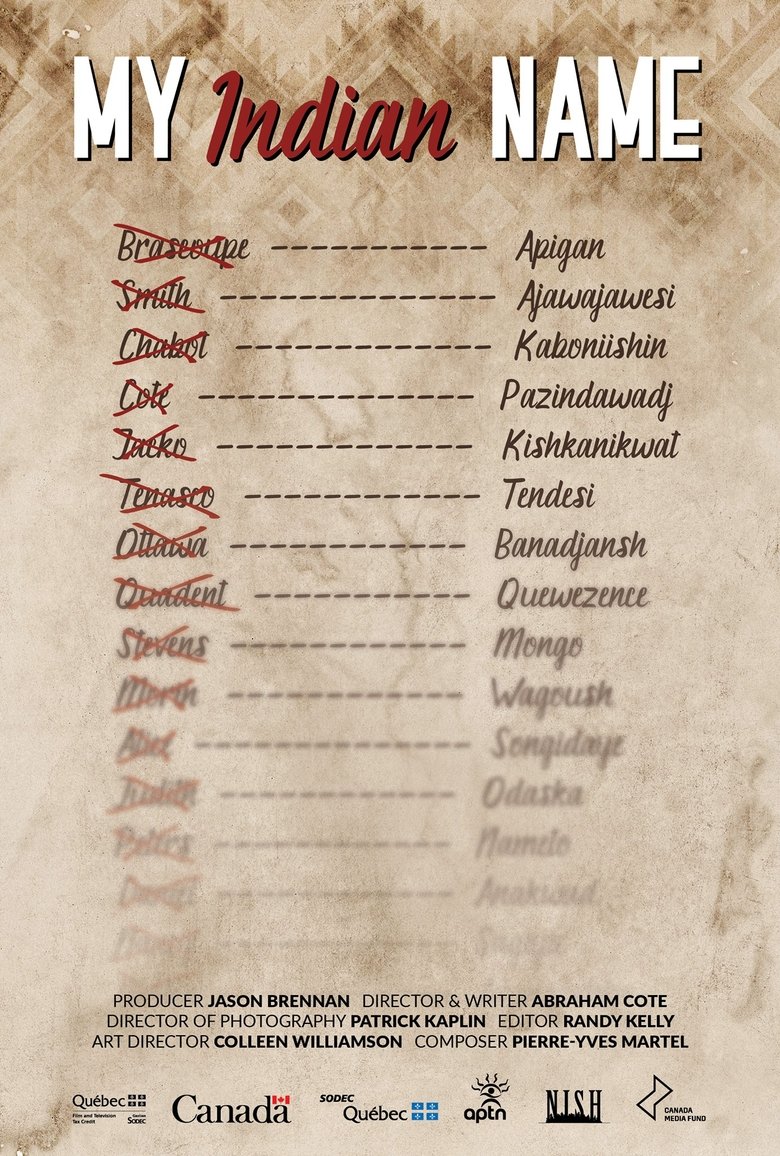 MY Indian NAME
Brascoupe ----------- Apigan
Smith ----------- Ajawajawesi
Chabot ----------- Kaboniishin
Cote ----------- Pazindawadj
Jacko ----------- Kishkanikwat
Tenasco ----------- Tendesi
Ottawa ----------- Banadjansh
Quadent ----------- Quewezence
Stevens ----------- Mongo
Morin ----------- Wagoush
Abel ----------- Songidaye
Judith ----------- Odaska
Peters ----------- Namelo
PRODUCER JASON BRENNAN DIRECTOR & WRITER ABRAHAM COTE
DIRECTOR OF PHOTOGRAPHY PATRICK KAPLIN EDITOR RANDY KELLY
ART DIRECTOR COLLEEN WILLIAMSON COMPOSER PIERRE-YVES MARTEL
Québec
Film and Television
Tax Credit
SODEC
Canada
SODEC
Québec
aptn
NISH
CANADA
MEDIA FUND